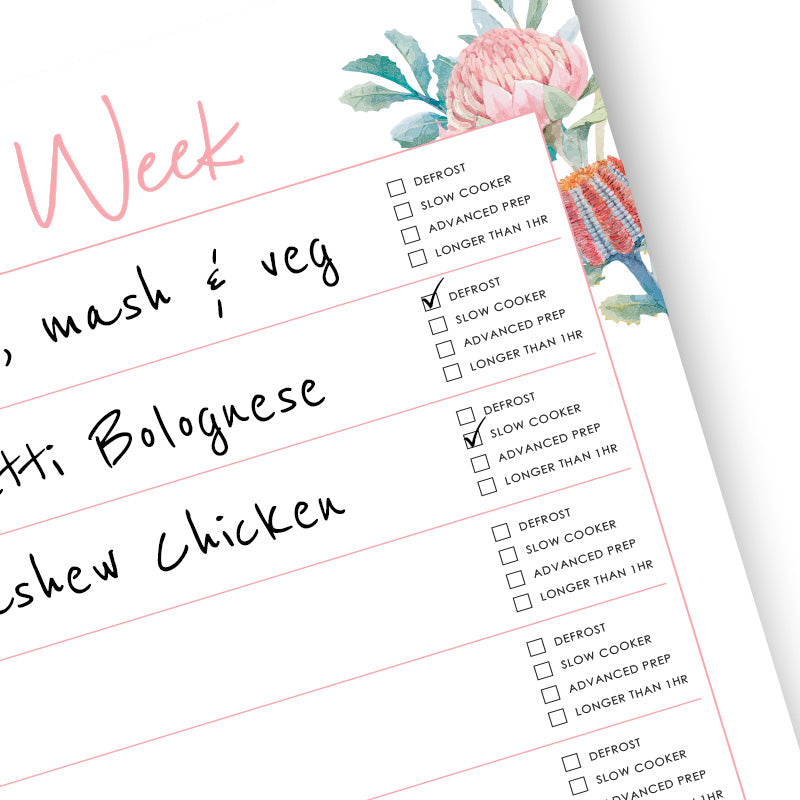 Week
DEFROST
SLOW COOKER
ADVANCED PREP
LONGER THAN 1HR
, mash & veg
DEFROST
SLOW COOKER
ADVANCED PREP
LONGER THAN 1HR
tti Bolognese
DEFROST
SLOW COOKER
ADVANCED PREP
LONGER THAN 1HR
shew Chicken
DEFROST
SLOW COOKER
ADVANCED PREP
LONGER THAN 1HR
DEFROST
SLOW COOKER
ADVANCED PREP
LONGER THAN 1HR
DEFROST
SLOW COOKER
ADVANCED PREP
THAN 1HR